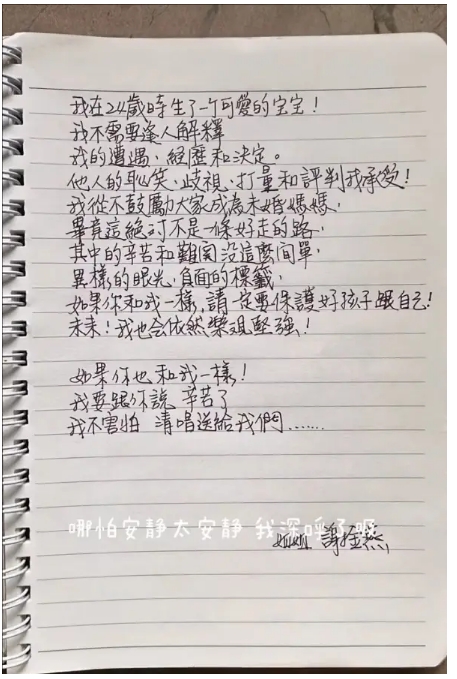 我在24歲時生了一个可愛的宝宝！
我不需要逢人解釋
我的遭遇、經歷和決定。
他人的恥笑、歧視、打量和評判我承受！
我從不鼓勵大家成為未婚媽媽，
畢竟這絕可不是一條好走的路，
其中的辛苦和難関没這麼间單，
異樣的眼光、負面的標籤，
如果你和我一樣，請一定要保護好孩子跟自己！
未来！我也会依然樂观堅强！
如果你也和我一樣！
我要跟你說 辛苦了
我不害怕 清唱送給我們……
哪怕安静太安静 我深呼了
姐姐 謝金燕